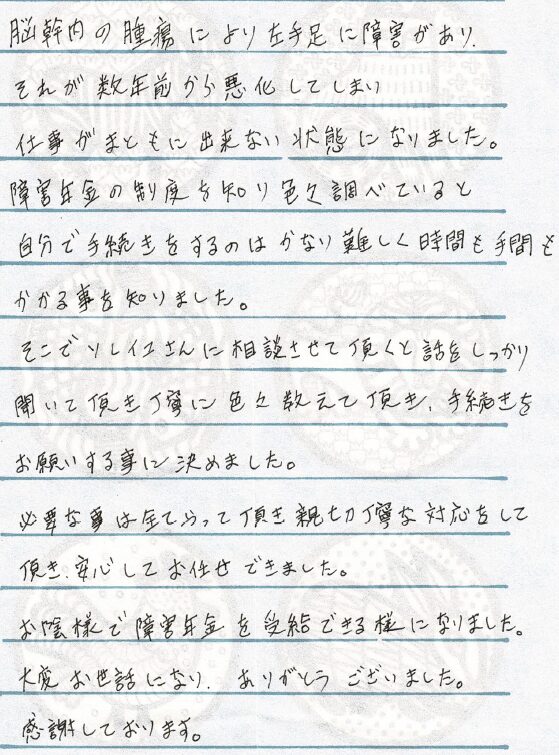 脳幹内の腫瘍により左手足に障害があり、
それが数年前から悪化してしまい
仕事がまともに出来ない状態になりました。
障害年金の制度を知り色々調べていると
自分で手続きをするのはかなり難しく時間も手間も
かかる事を知りました。
そこでソレイユさんに相談させて頂くと話をしっかり
聞いて頂き丁寧に色々教えて頂き、手続きを
お願いする事に決めました。
必要な事は全てやって頂き親切丁寧な対応をして
頂き、安心してお任せできました。
お陰様で障害年金を受給できる様になりました。
大変お世話になり、ありがとうございました。
感謝しております。